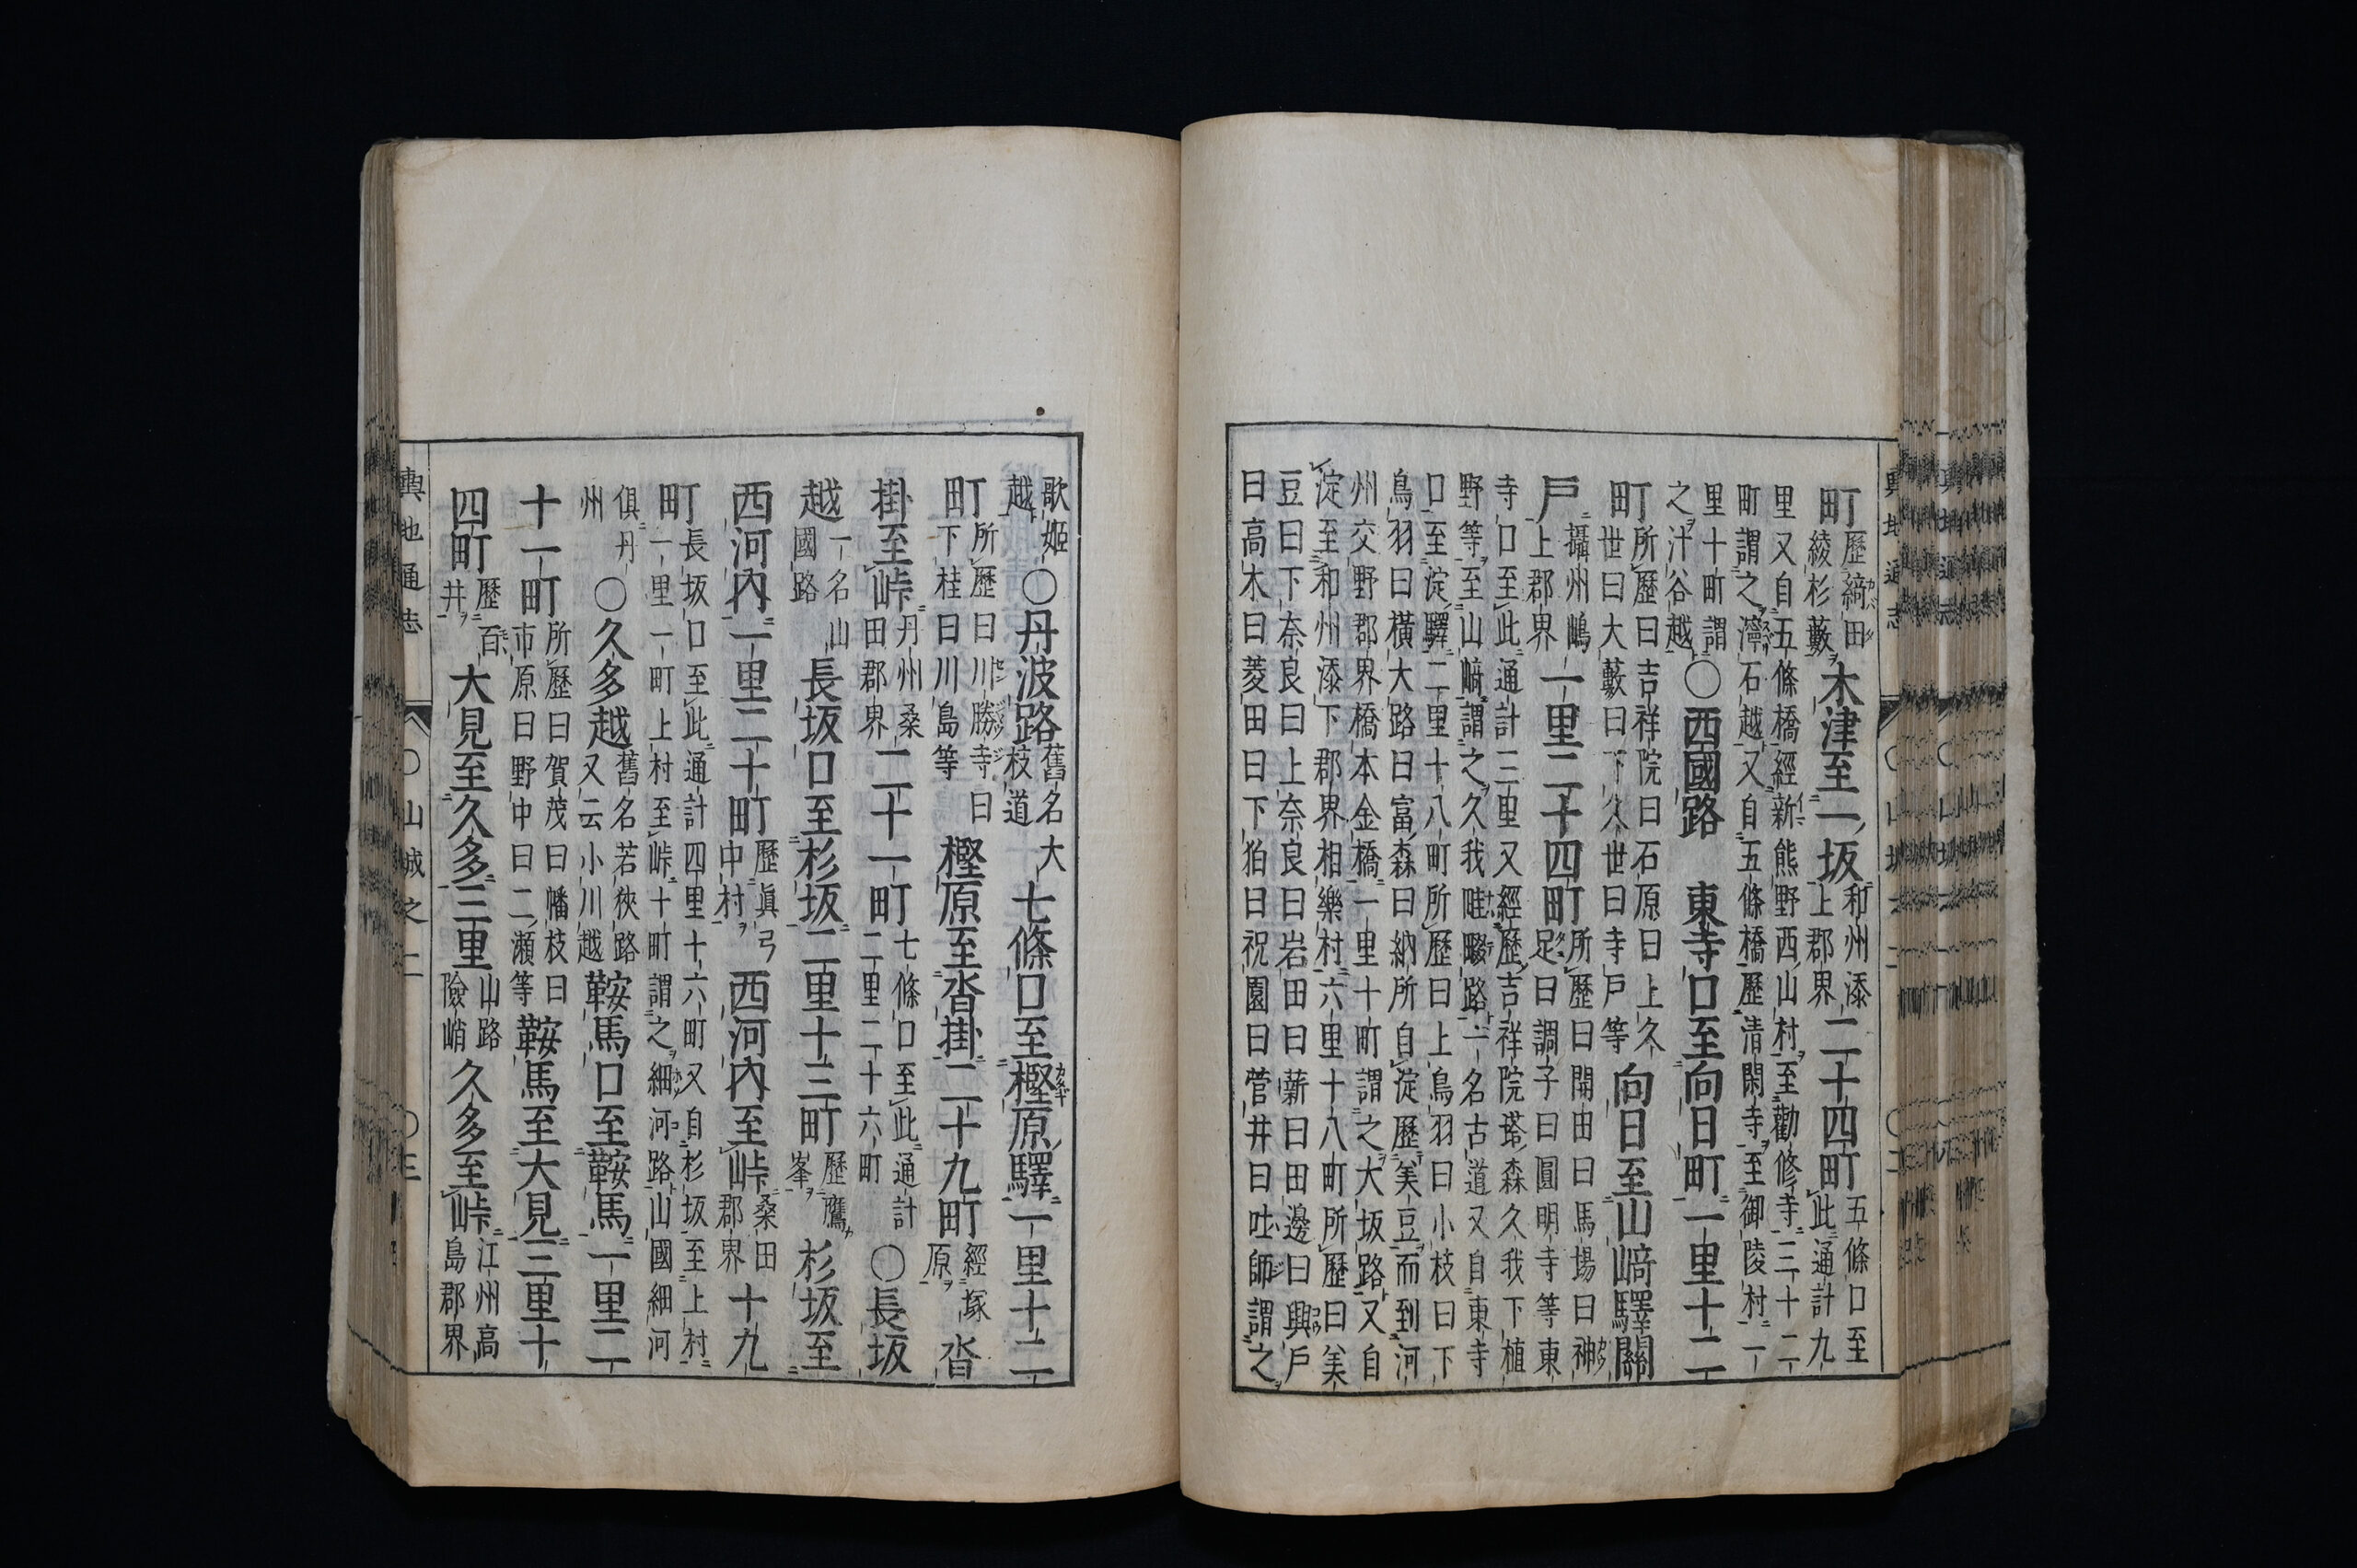 町歷綺田綾杉藪木津至一坂和州添上郡界二十四町五條口至此通計九
里又自五條橋經新熊野西山村至勸修寺三十二
町謂之滑石越又自五條橋歷清閑寺至御陵村一
里十町謂之汁谷越○西國路 東寺口至向日町一里十二
町所歷曰吉祥院曰石原曰上久世曰大藪曰下久世曰寺戸等向日至山﨑驛關
戸攝州嶋上郡界一里二十四町所歷曰開田曰馬塲曰神足曰調子曰圓明寺等東
寺口至此通計三里又經歷吉祥院塔森久我下植
野等至山﨑謂之久我畷路一名古道又自東寺
口至淀驛二里十八町所歷曰上鳥羽曰小枝曰下
鳥羽曰橫大路曰富森曰納所自淀歷美豆而到河
州交野郡界橋本金橋一里十町謂之大坂路又自
淀至和州添下郡界相樂村六里十八町所歷曰美
豆曰下奈良曰上奈良曰岩田曰薪曰田邊曰興戸
曰高木曰菱田曰下狛曰祝園曰菅井曰吐師謂之
歌姬越○丹波路舊名大枝道七條口至樫原驛一里十二
町所歷曰川勝寺曰下桂曰川島等樫原至沓掛二十九町經塚原沓
掛至峠丹州桑田郡界二十一町七條口至此通計二里二十六町○長坂
越一名山國路長坂口至杉坂二里十三町歷鷹峯杉坂至
西河内一里二十町歷眞弓中村西河内至峠桑田郡界十九
町長坂口至此通計四里十六町又自杉坂至上村一里一町上村至峠十町謂之細河路山國細河
俱丹州○久多越舊名若狹路又云小川越鞍馬口至鞍馬一里二
十一町所歷曰賀茂曰幡枝曰市原曰野中曰二瀬等鞍馬至大見三里十
四町歷百井大見至久多三里山路險峭久多至峠江州高島郡界
輿地通志 ○山城之二 ○三